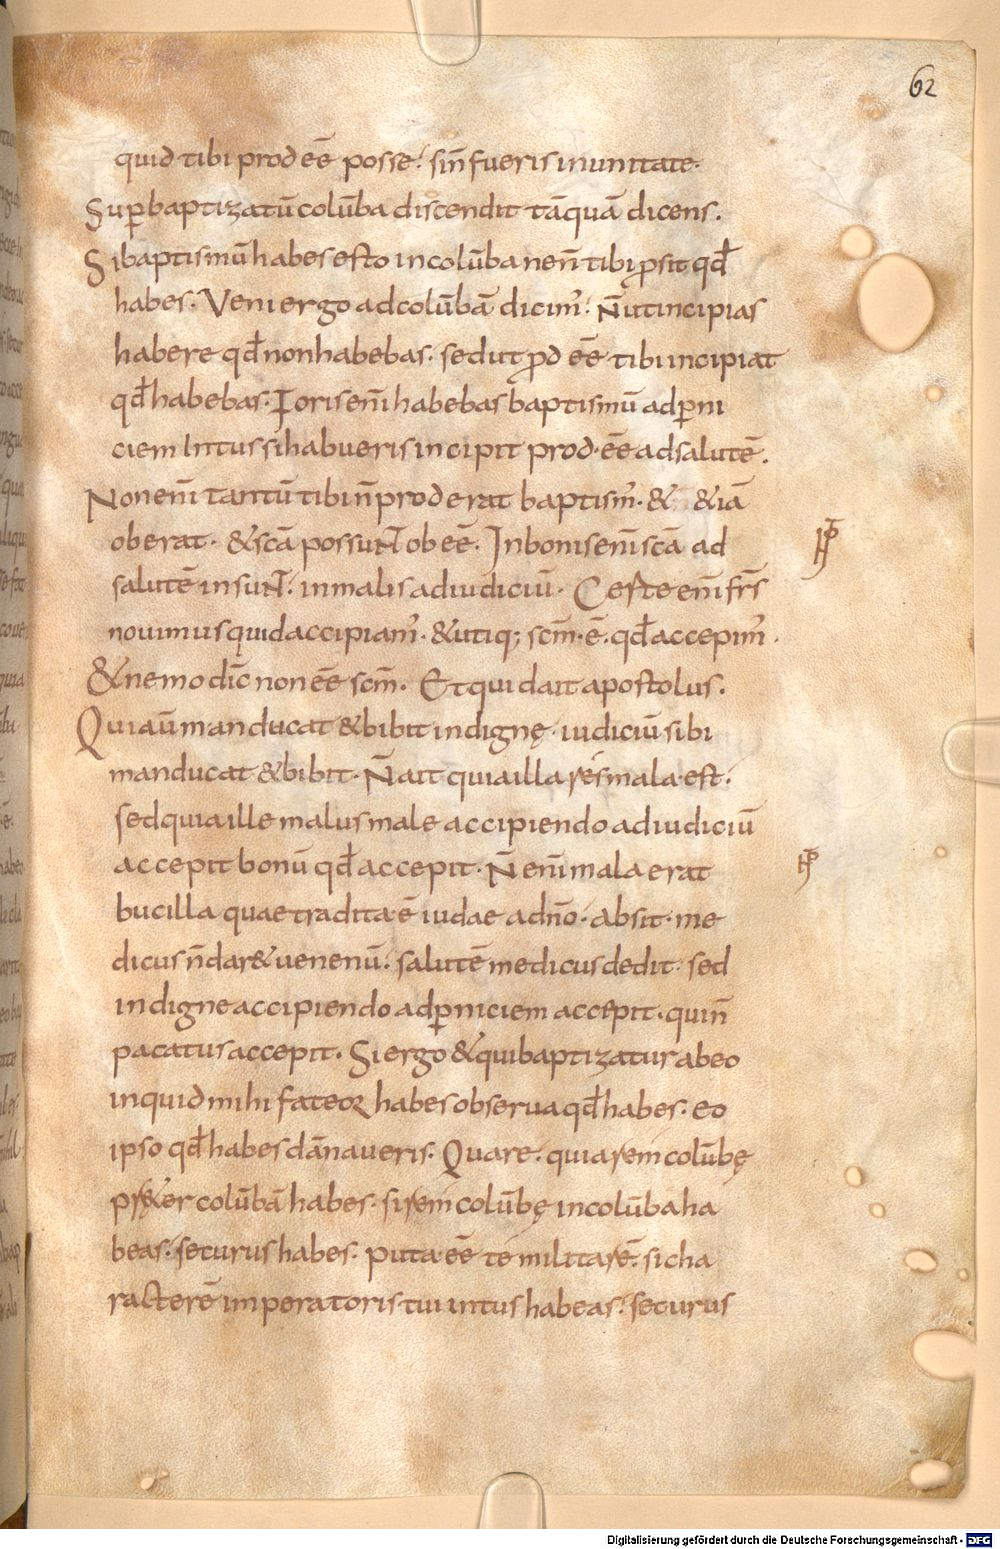 62
quid tibi prod eē posse. sin̄ fueris in unitate.
Sup baptizatū colūba discendit tāquā dicens.
Si baptismū habes esto in colūba ne n̄ tibi ꝓsit qđ
habes. Veni ergo ad colūbā dicim'. N̄ ut incipias
habere qđ non habebas. sed ut ꝓd eē tibi incipiat
qđ habebas. Foris enī habebas baptismū ad ꝑni
ciem Intus si habueris incipit prod eē ad salutē.
Non enī tantū tibi n̄ proderat baptism'. & & iā
oberat. & scā possuNT ob eē. In bonis enī scā ad
salutē insuNT. in malis ad iudiciū. Certe enī fr̄s
novimus quid accipiam'. & utiq; scm̄ ē. qđ accepim'.
& nemo dīc non eē scm̄. Et quid ait apostolus.
Qui aū manducat & bibit indignę. iudiciū sibi
manducat & bibit. N̄ ait quia illa res mala est.
sed quia ille malus male accipiendo ad iudiciū
accepit bonū qđ accepit. N̄ enī mala erat
bucilla quae tradita ē iudae a dn̄o. Absit. me
dicus n̄ dar& venenū. salutē medicus dedit. sed
indigne accipiendo ad ꝑniciem accepit. qui n̄
pacatus accepit. Si ergo & qui baptizatur abeo
inquid mihi fateoꝛ habes observa qđ habes. eo
ipso qđ habes dānaveris. Quare. quia rem colūbę
pręt&er colūbā habes. si rem colūbę in colūba ha
beas. securus habes. puta eē te militarē. si cha
racterē imperatoris tui intus habeas. securus
Digitalisierung gefördert durch die Deutsche Forschungsgemeinschaft - DFG